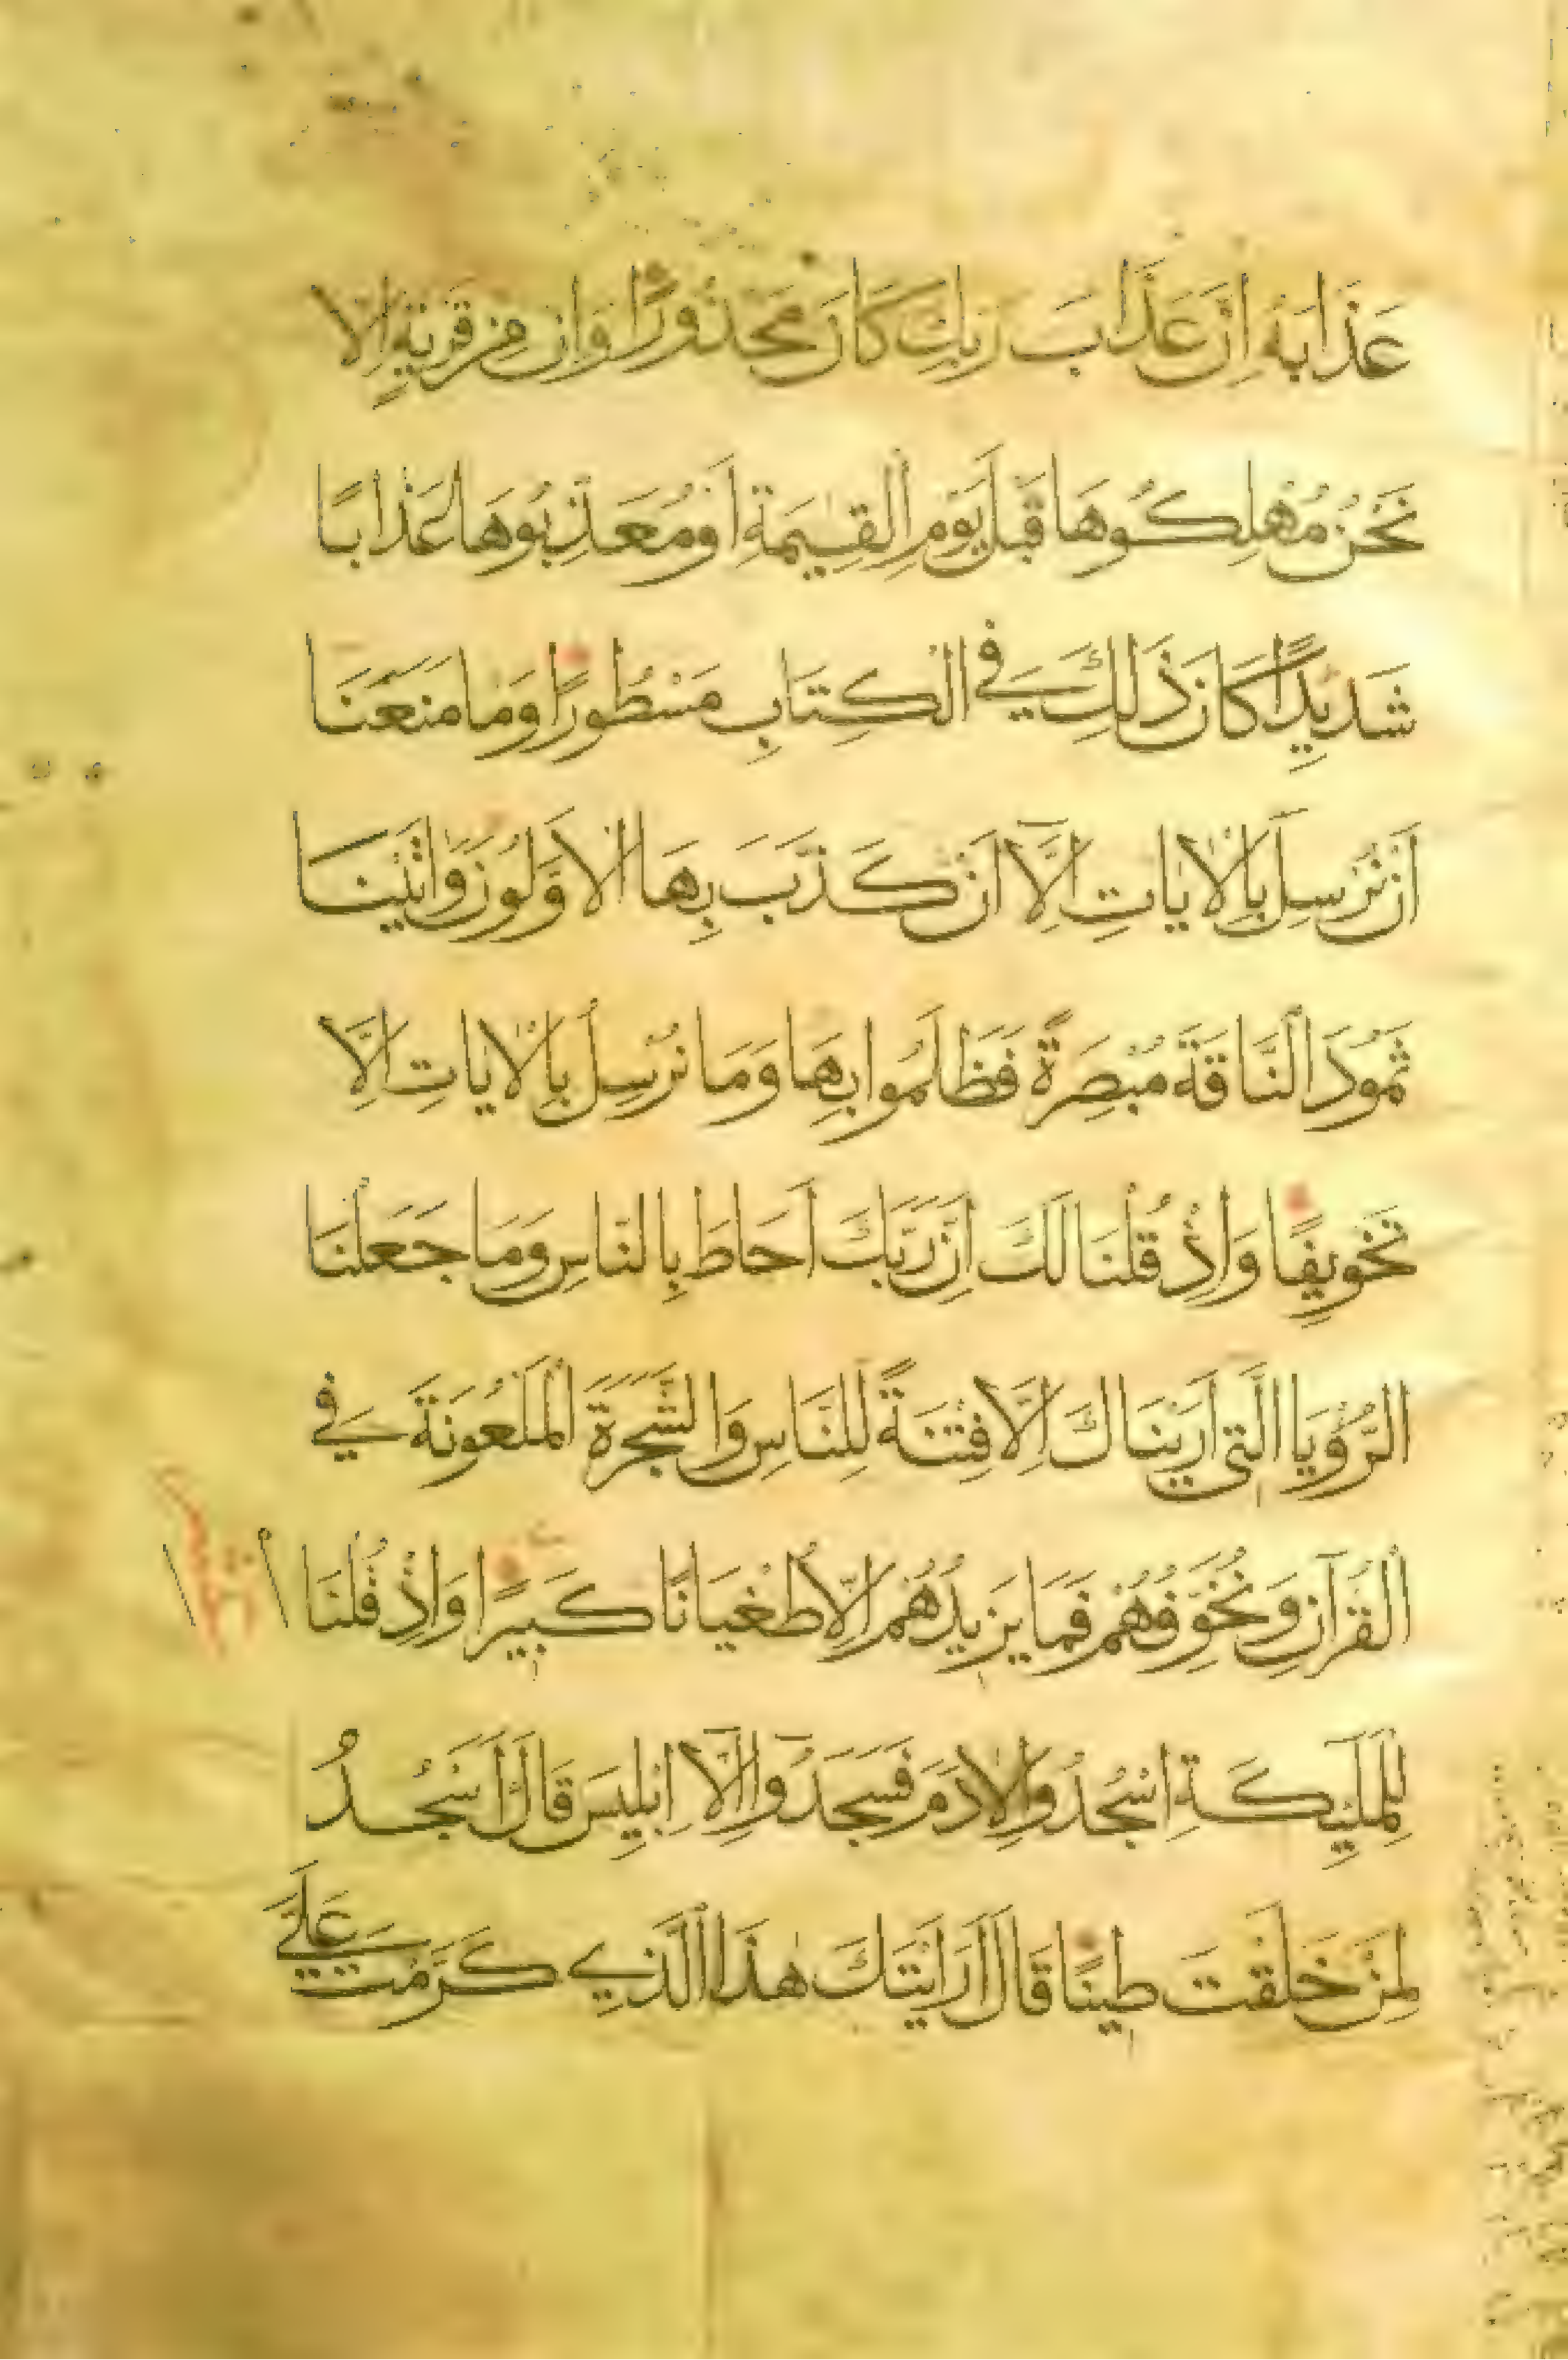 عَذَابَهُ اِنَّ عَذَابَ رَبِّكَ كَانَ مَحْذُورًا وَاِنْ مِنْ قَرْيَةٍ اِلَّا
نَحْنُ مُهْلِكُوهَا قَبْلَ يَوْمِ الْقِيٰمَةِ اَوْ مُعَذِّبُوهَا عَذَابًا
شَدِيدًا كَانَ ذَلِكَ فِي الْكِتَابِ مَسْطُورًا وَمَا مَنَعَنَا
اَنْ نُرْسِلَ بِالْاٰيَاتِ اِلَّآ اَنْ كَذَّبَ بِهَا الْاَوَّلُونَ وَاٰتَيْنَا
ثَمُودَ النَّاقَةَ مُبْصِرَةً فَظَلَمُوا بِهَا وَمَا نُرْسِلُ بِالْاٰيَاتِ اِلَّا
تَخْوِيفًا وَاِذْ قُلْنَا لَكَ اِنَّ رَبَّكَ اَحَاطَ بِالنَّاسِ وَمَا جَعَلْنَا
الرُّؤْيَا الَّتِي اَرَيْنَاكَ اِلَّا فِتْنَةً لِلنَّاسِ وَالشَّجَرَةَ الْمَلْعُونَةَ فِي
الْقُرْآنِ وَنُخَوِّفُهُمْ فَمَا يَزِيدُهُمْ اِلَّا طُغْيَانًا كَبِيرًا وَاِذْ قُلْنَا
لِلْمَلٰٓئِكَةِ اسْجُدُوا لِاٰدَمَ فَسَجَدُوٓا اِلَّآ اِبْلِيسَ قَالَ ءَاَسْجُدُ
لِمَنْ خَلَقْتَ طِينًا قَالَ اَرَاَيْتَكَ هٰذَا الَّذِي كَرَّمْتَ عَلَيَّ